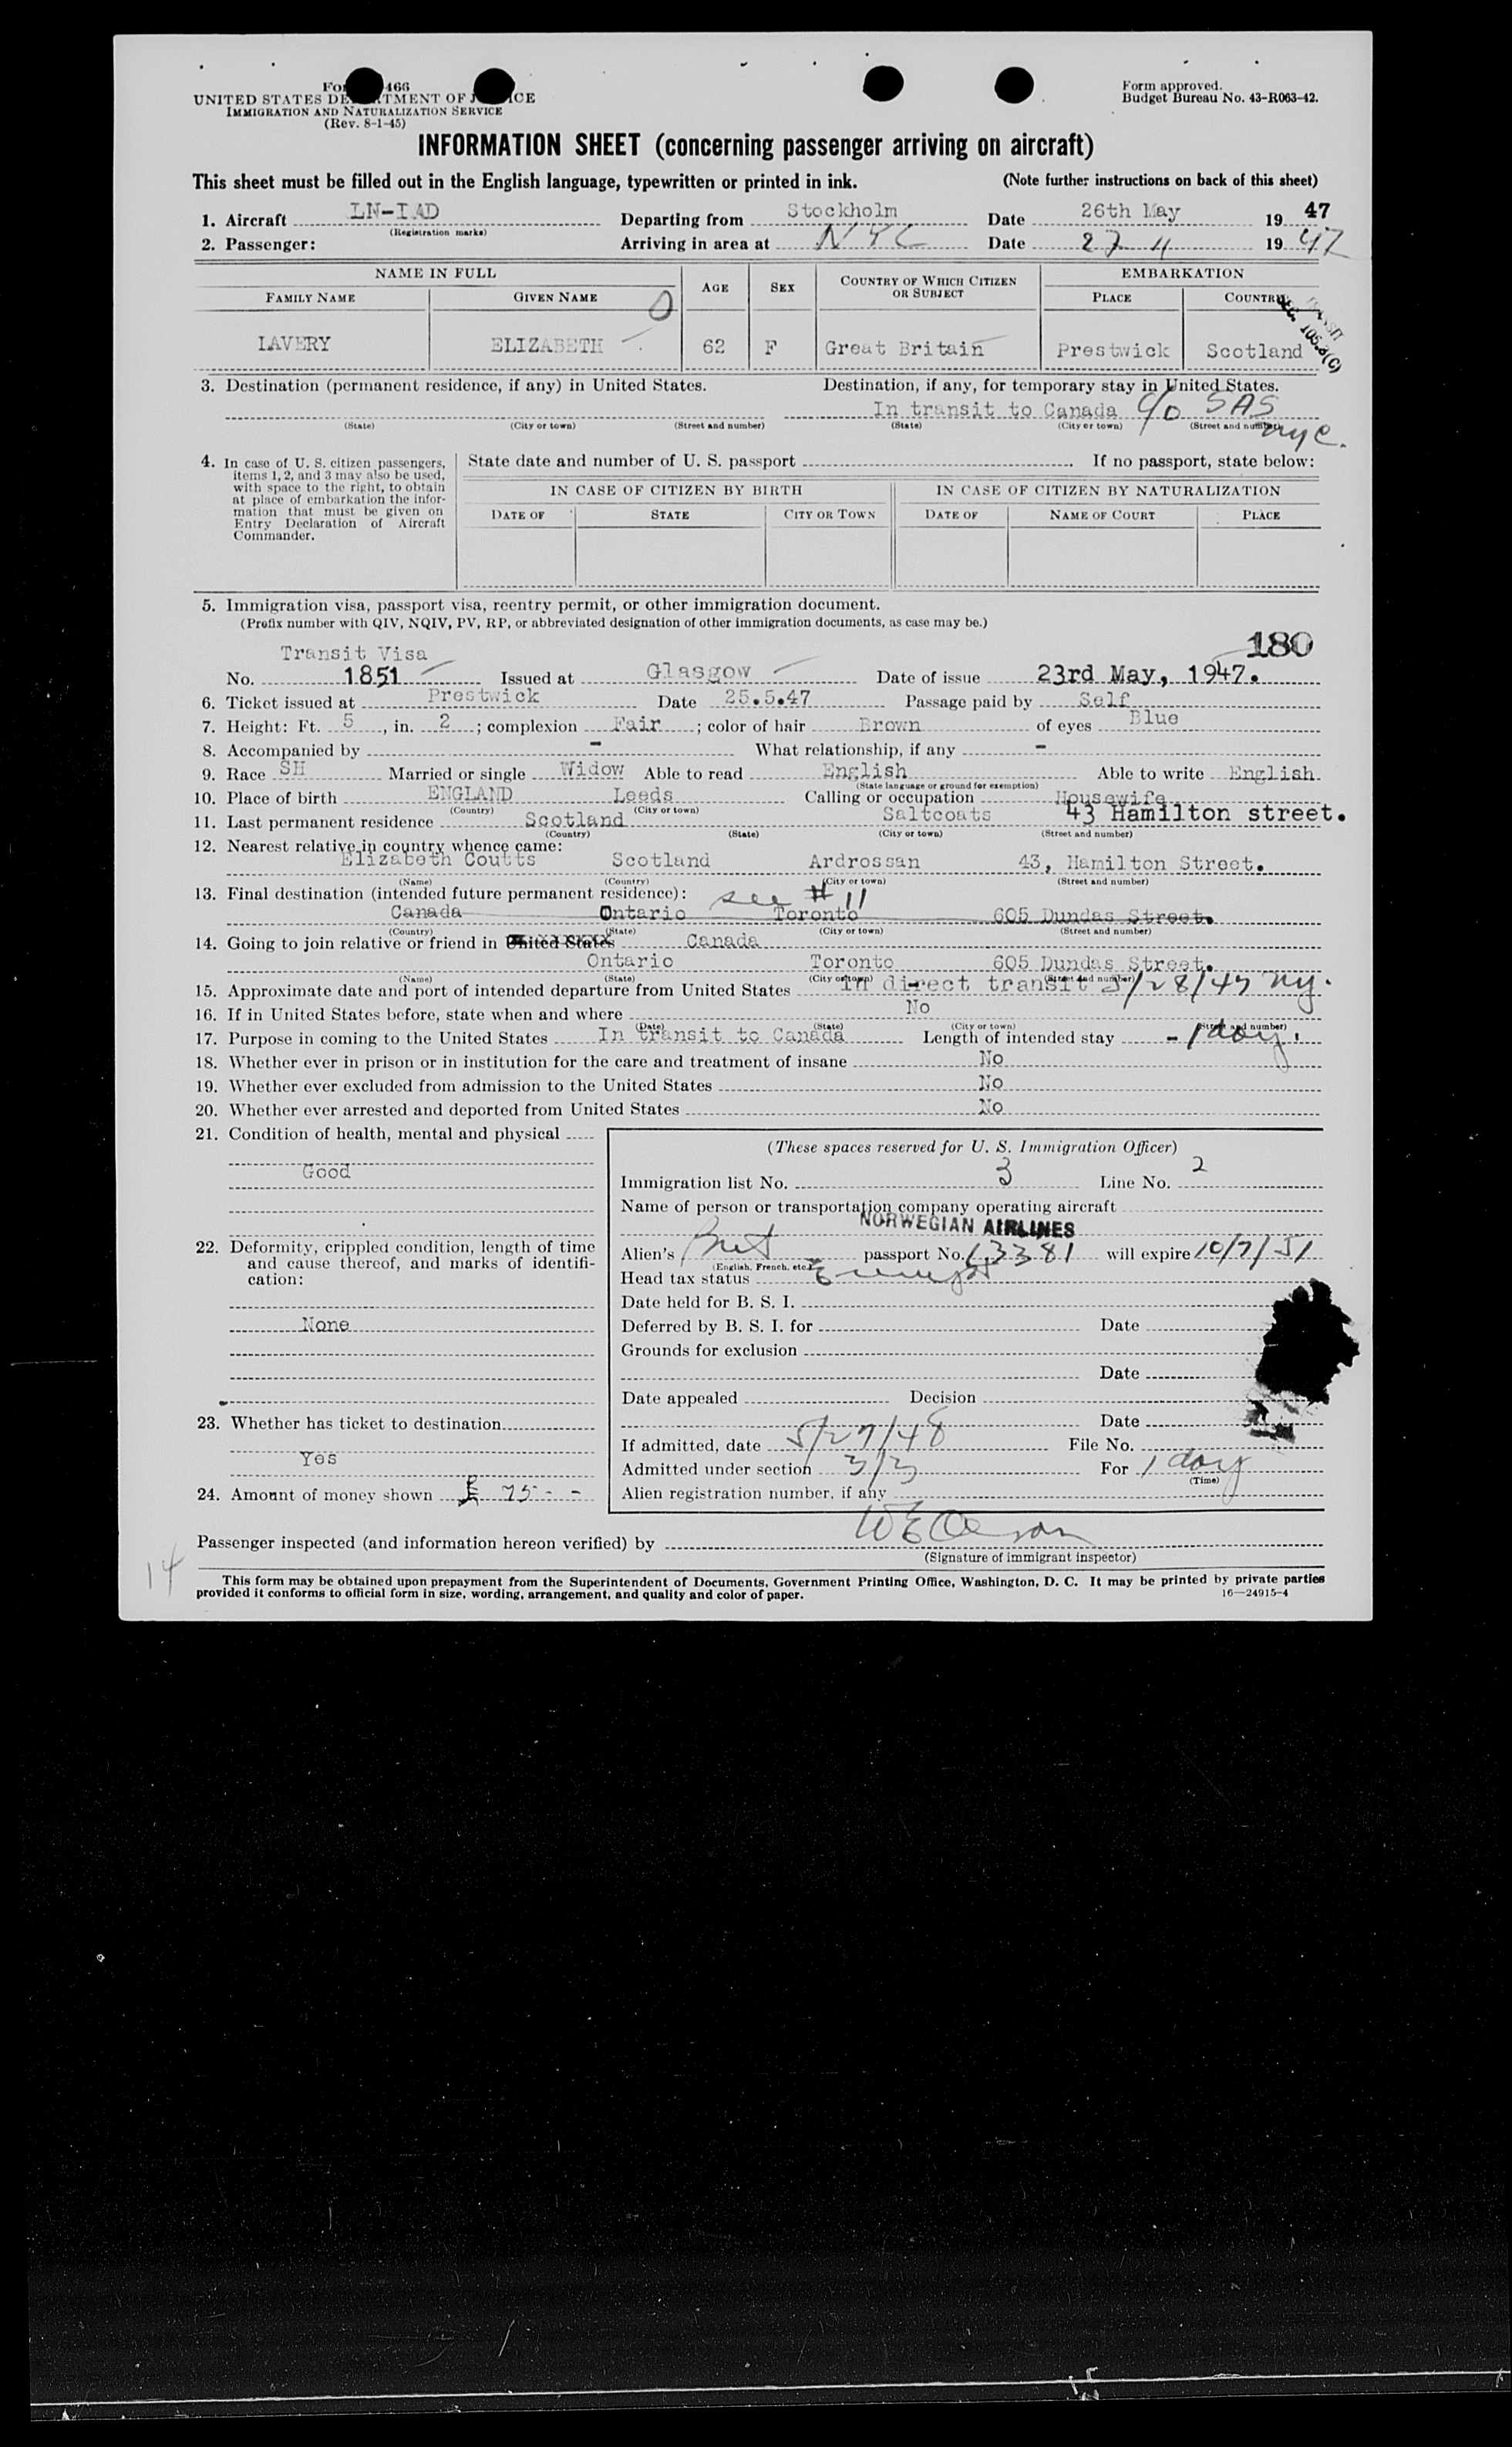 Form 466
UNITED STATES DEPARTMENT OF JUSTICE
IMMIGRATION AND NATURALIZATION SERVICE
(Rev. 8-1-45)
Form approved.
Budget Bureau No. 43-R063-42.
INFORMATION SHEET (concerning passenger arriving on aircraft)
This sheet must be filled out in the English language, typewritten or printed in ink. (Note further instructions on back of this sheet)
1. Aircraft LN-IAD Departing from Stockholm Date 26th May 19 47
(Registration marks)
2. Passenger: Arriving in area at NYC Date 27 " 19 47
NAME IN FULL AGE SEX COUNTRY OF WHICH CITIZEN OR SUBJECT EMBARKATION
FAMILY NAME GIVEN NAME PLACE COUNTRY
LAVERY ELIZABETH 62 F Great Britain Prestwick Scotland
3. Destination (permanent residence, if any) in United States. Destination, if any, for temporary stay in United States.
In transit to Canada c/o SAS
(State) (City or town) (Street and number) (State) (City or town) (Street and number)
nyc.
4. In case of U. S. citizen passengers, items 1, 2, and 3 may also be used, with space to the right, to obtain at place of embarkation the information that must be given on Entry Declaration of Aircraft Commander.
State date and number of U. S. passport If no passport, state below:
IN CASE OF CITIZEN BY BIRTH IN CASE OF CITIZEN BY NATURALIZATION
DATE OF STATE CITY OR TOWN DATE OF NAME OF COURT PLACE
5. Immigration visa, passport visa, reentry permit, or other immigration document.
(Prefix number with QIV, NQIV, PV, RP, or abbreviated designation of other immigration documents, as case may be.)
180
Transit Visa
No. 1851 Issued at Glasgow Date of issue 23rd May, 1947.
6. Ticket issued at Prestwick Date 25.5.47 Passage paid by Self
7. Height: Ft. 5, in. 2; complexion Fair; color of hair Brown of eyes Blue
8. Accompanied by - What relationship, if any -
9. Race SH Married or single Widow Able to read English Able to write English
(State language or ground for exemption)
10. Place of birth ENGLAND Leeds Calling or occupation Housewife
(Country) (City or town)
11. Last permanent residence Scotland Saltcoats 43 Hamilton street.
(Country) (State) (City or town) (Street and number)
12. Nearest relative in country whence came:
Elizabeth Coutts Scotland Ardrossan 43, Hamilton Street.
(Name) (Country) (City or town) (Street and number)
13. Final destination (intended future permanent residence): see # 11
Canada Ontario Toronto 605 Dundas Street.
(Country) (State) (City or town) (Street and number)
14. Going to join relative or friend in United States Canada
Ontario Toronto 605 Dundas Street.
(Name) (State) (City or town) (Street and number)
15. Approximate date and port of intended departure from United States in direct transit 5/28/47 ny.
16. If in United States before, state when and where No
(Date) (State) (City or town) (Street and number)
17. Purpose in coming to the United States In transit to Canada Length of intended stay - 1 day.
18. Whether ever in prison or in institution for the care and treatment of insane No
19. Whether ever excluded from admission to the United States No
20. Whether ever arrested and deported from United States No
21. Condition of health, mental and physical
Good
22. Deformity, crippled condition, length of time and cause thereof, and marks of identification:
None
23. Whether has ticket to destination
Yes
24. Amount of money shown £ 75 - -
(These spaces reserved for U. S. Immigration Officer)
Immigration list No. 3 Line No. 2
Name of person or transportation company operating aircraft
NORWEGIAN AIRLINES
Alien's Brit passport No. 13381 will expire 10/7/51
(English, French, etc.)
Head tax status Exempt
Date held for B. S. I.
Deferred by B. S. I. for Date
Grounds for exclusion
Date
Date appealed Decision
Date
If admitted, date 5/27/48 File No.
Admitted under section 3/3 For 1 day
(Time)
Alien registration number, if any
Passenger inspected (and information hereon verified) by
(Signature of immigrant inspector)
14
This form may be obtained upon prepayment from the Superintendent of Documents, Government Printing Office, Washington, D. C. It may be printed by private parties
provided it conforms to official form in size, wording, arrangement, and quality and color of paper. 16—24915-4